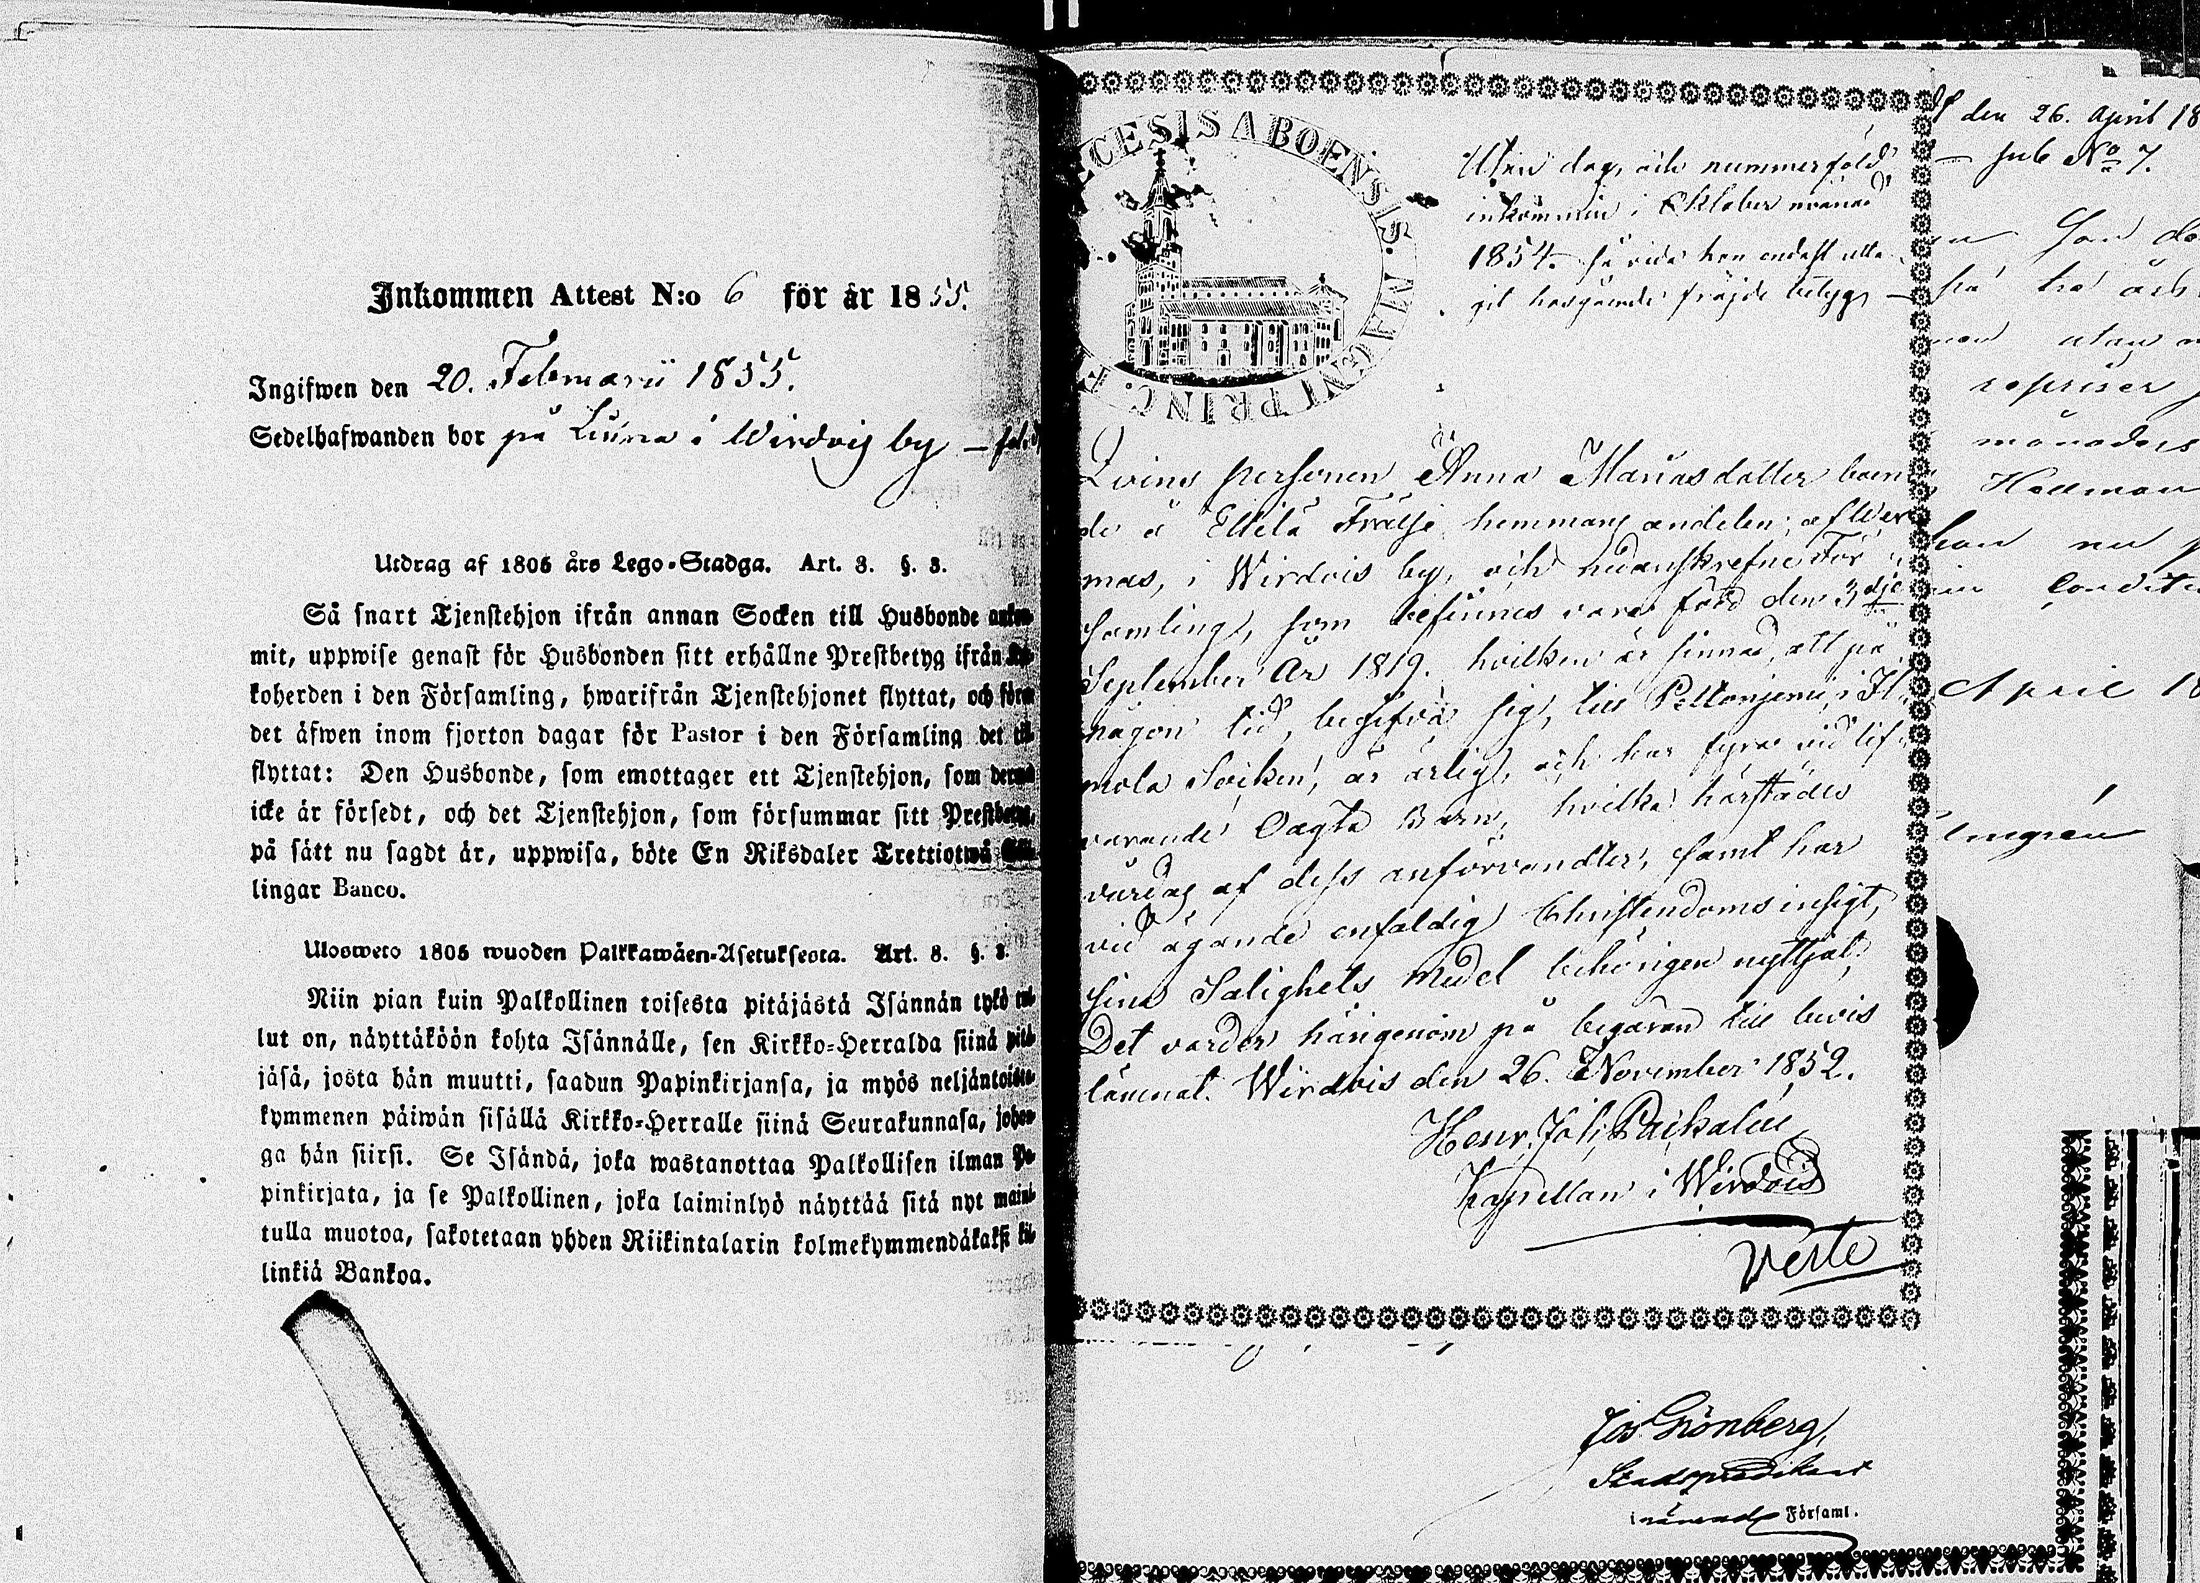 Inkommen Attest N:o 6 för år 1855.
Ingifwen den 20. Februarii 1855.
Sedelhafwanden bor på Liuna i Wirdvis by —
Utdrag af 1805 års Lego-Stadga. Art. 8. §. 3.
Så snart Tjenstehjon ifrån annan Socken till Husbonde
mit, uppwise genast för Husbonden sitt erhållne Prestbetyg ifrån
koherden i den Församling, hwarifrån Tjenstehjonet flyttat, och
det äfwen inom fjorton dagar för Pastor i den Församling det
flyttat: Den Husbonde, som emottager ett Tjenstehjon, som
icke är försedt, och det Tjenstehjon, som försummar sitt
på sätt nu sagdt är, uppwisa, böte En Riksdaler Trettiotwå
lingar Banco.
Ulosweto 1805 wuoden Palkkawäen-Asetuksesta. Art. 8. §. 3.
Niin pian kuin Palkollinen toisesta pitäjästä Isännän tykö
lut on, näyttäköön kohta Isännälle, sen Kirkko-Herralda siinä
jäsä, josta hän muutti, saadun Papinkirjansa, ja myös neljäntoista-
kymmenen päiwän sisällä Kirkko-Herralle siinä Seurakunnasa,
ga hän siirsi. Se Isändä, joka wastanottaa Palkollisen ilman
pinkirjata, ja se Palkollinen, joka laiminlyö näyttää sitä nyt
tulla muotoa, sakotetaan yhden Riikintalarin kolmekymmendäkaksi
linkiä Bankoa.
CESIS ABOENSIS. MAGNI PRINC. F
Utan dag och nummerföljd
inkommen i Oktober månad
1854. så vida hon endast utta-
git hosgående fräjde betyg —
Qvins personen Anna Mariasdotter boen
de å Ellilä Frälse hemmans andelen, af Wer
mas, i Wirdois by, och nedanskrefne För
samling, som befinnes vara född den 3dje
September År 1819. hvilken är sinnad, att på
någon tid, begifva sig, till Peltoniemi, i Il
mola Socken, är ärlig, och har fyra vid lif
varande Oägta Barn, hvilka härstädes
vårdas af dess anförvandter, samt har
vid ägande enfaldig Christendoms insigt,
sina Salighets medel behörigen nyttjat;
Det varder härigenom på begäran till bevis
lämnat. Wirdois den 26. November 1852.
Henr. Joh. Paikalin
Kapellan i Wirdois
Verte
Jos Grönberg,
Stadspredikant
Församl.
den 26. April 18
— sub No 7.
repriser
månaders
Hallman
han nu
April 18